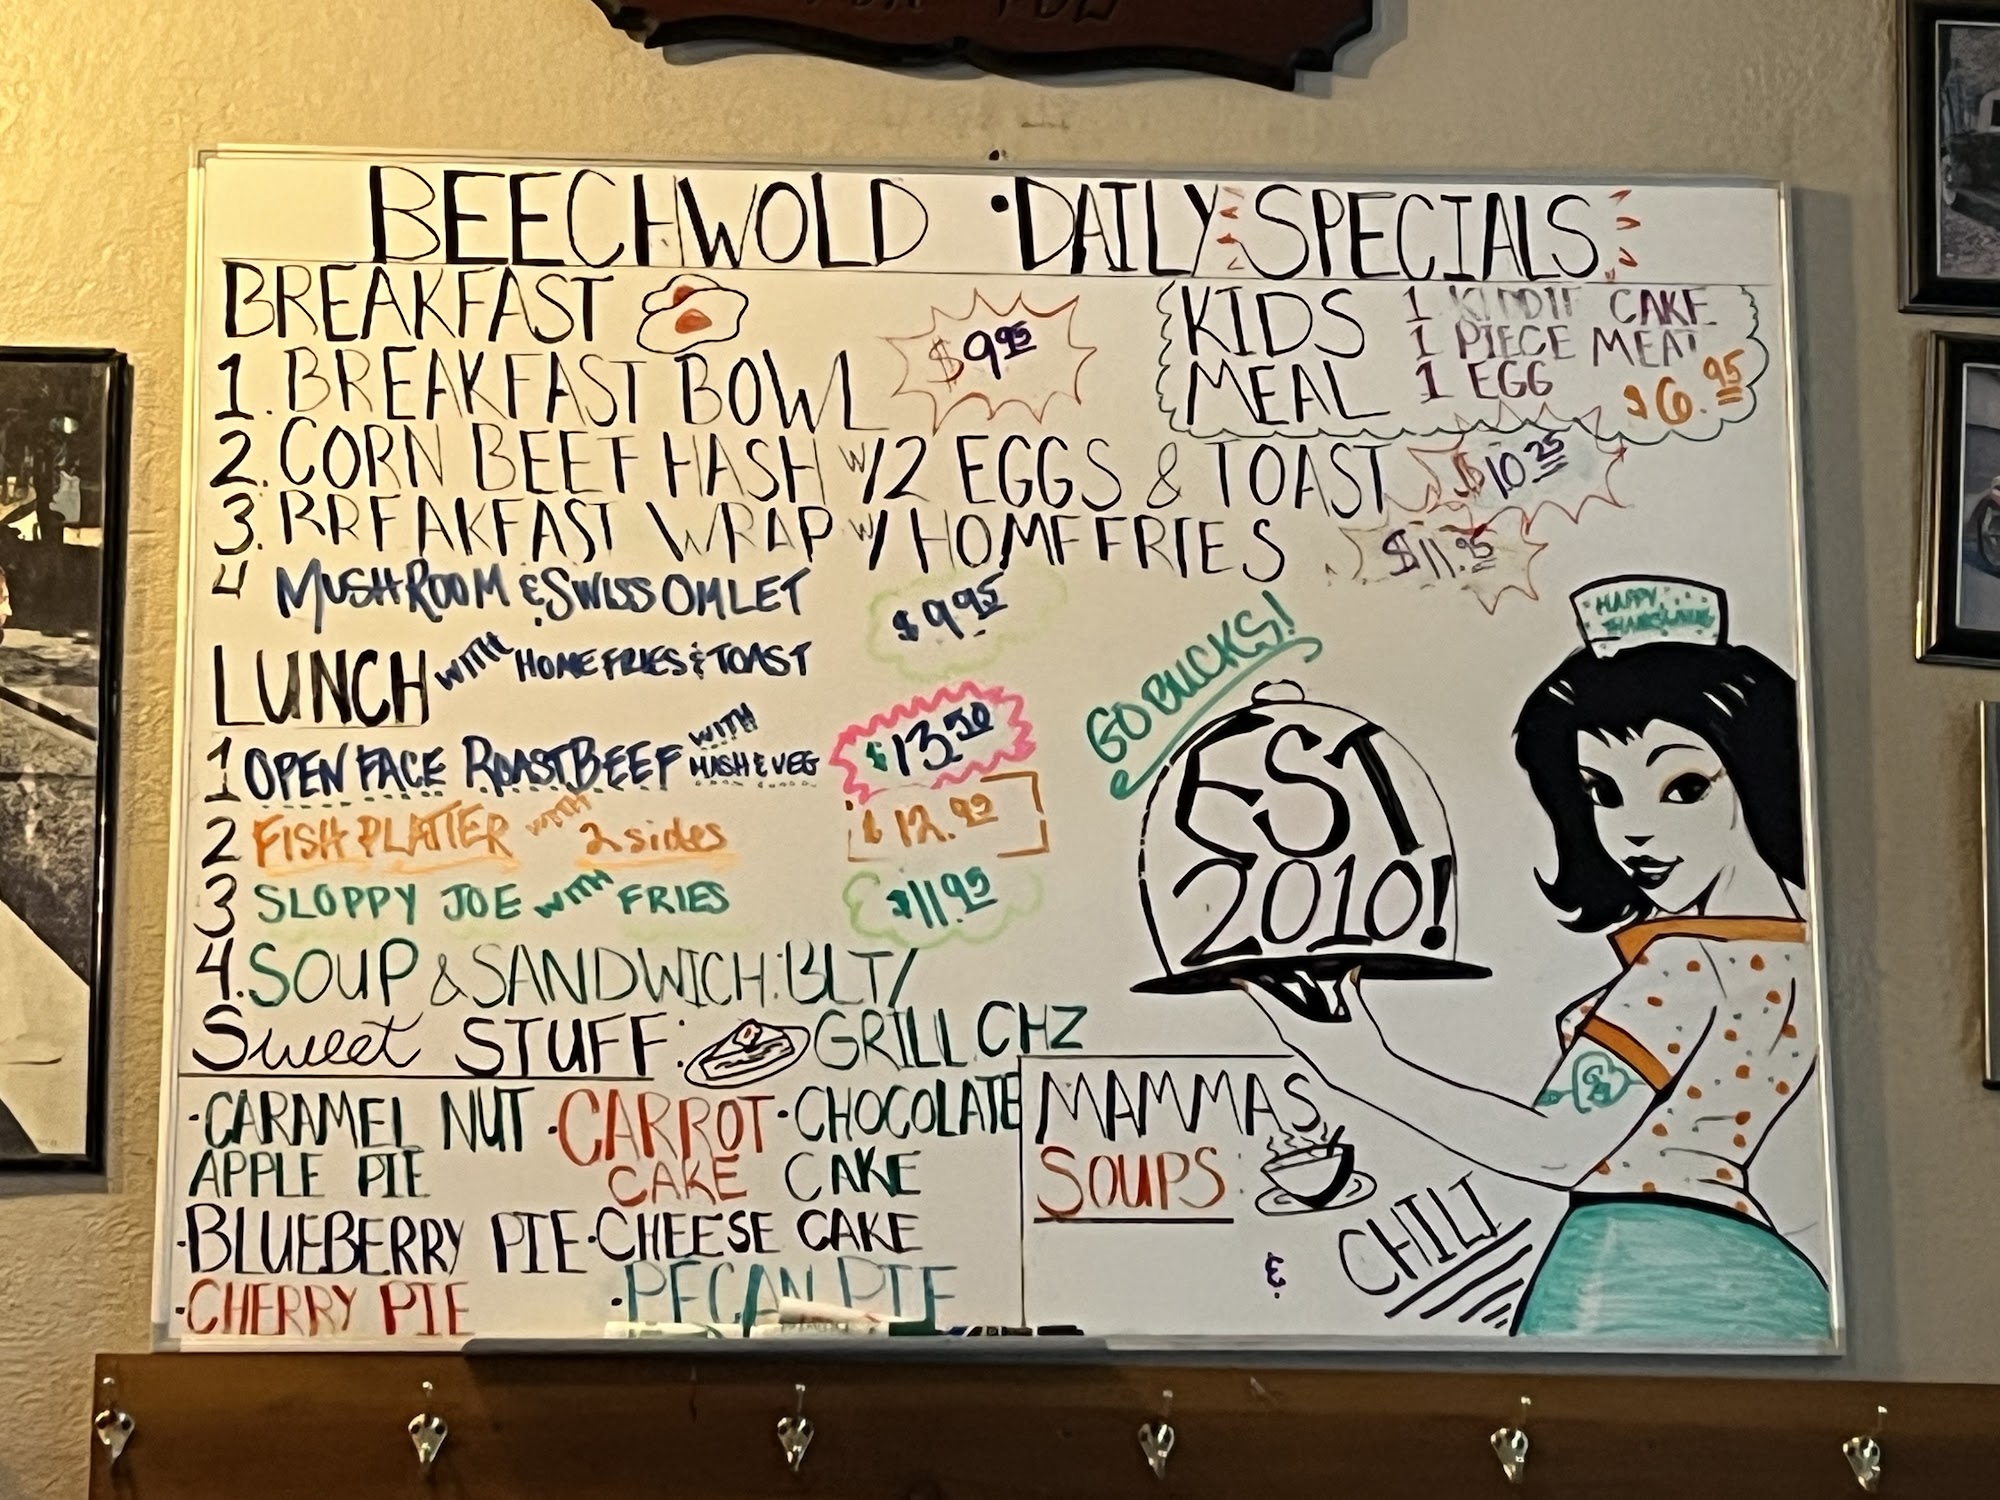 BEECHWOLD • DAILY SPECIALS
BREAKFAST
1. BREAKFAST BOWL $9.95
2. CORN BEEF HASH w/2 EGGS & TOAST $10.25
3. BREAKFAST WRAP w/ HOMEFRIES $11.95
4 MUSHROOM & SWISS OMLET $9.95
WITH HOMEFRIES & TOAST
KIDS MEAL
1 KIDDIE CAKE
1 PIECE MEAT
1 EGG $6.95
LUNCH
1 OPEN FACE ROAST BEEF WITH MASH & VEG $13.50
2 FISH PLATTER WITH 2 sides
3 SLOPPY JOE WITH FRIES $11.95
4. SOUP & SANDWICH: BLT/
GRILL CHZ
GO BUCKS!
HAPPY
THANKSGIVING
EST
2010!
Sweet STUFF:
• CARAMEL NUT
APPLE PIE
• CARROT
CAKE
• CHOCOLATE
CAKE
• BLUEBERRY PIE
• CHEESE CAKE
• CHERRY PIE
• PECAN PIE
MAMMAS
SOUPS:
&
CHILI